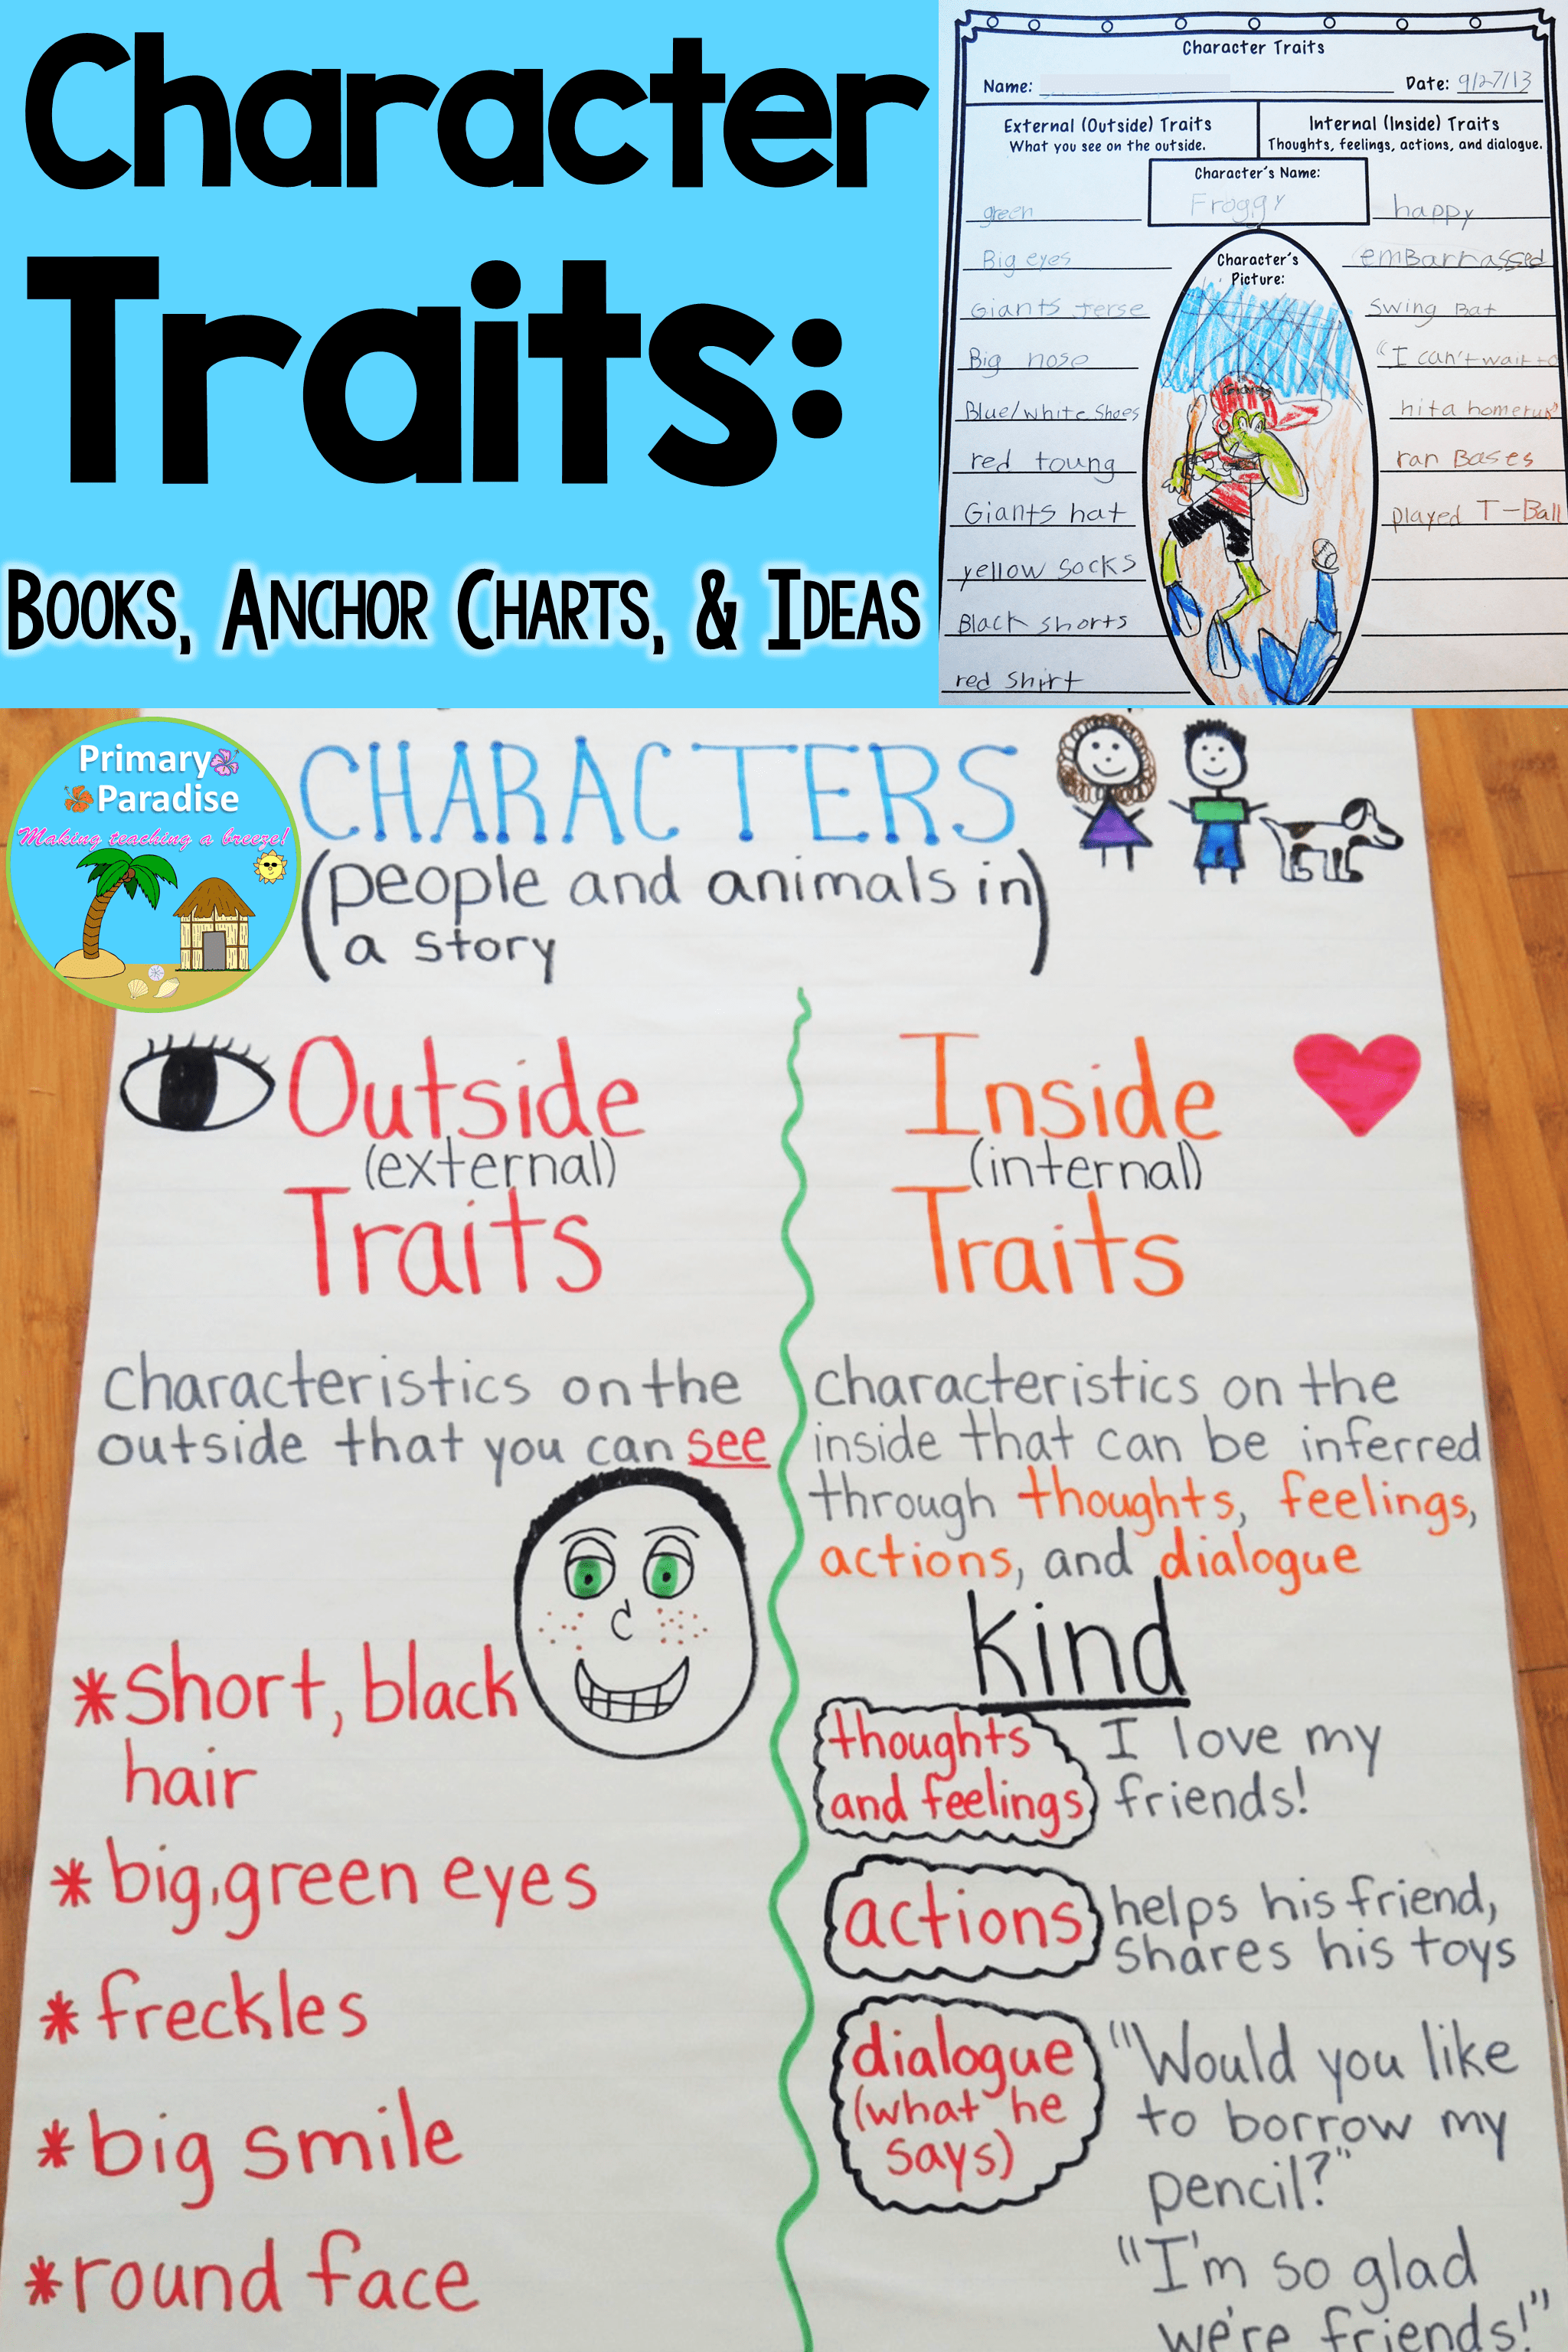 Character
Traits:
BOOKS, ANCHOR CHARTS, & IDEAS
Character Traits
Name:
Date: 9/27/13
External (Outside) Traits
What you see on the outside.
Internal (Inside) Traits
Thoughts, feelings, actions, and dialogue.
Character's Name:
Froggy
Character's
Picture:
green
Big eyes
Giants Jerse
Big nose
Blue/white Shoes
red toung
Giants hat
yellow socks
Black shorts
red shirt
happy
emBarrassed
swing Bat
"I can't wait to
hit a homerun"
ran Bases
played T-Ball
Primary
Paradise
Making teaching a breeze!
CHARACTERS
(people and animals in
a story)
Outside
(external)
Traits
Characteristics on the
outside that you can see
*short, black
hair
*big, green eyes
*freckles
*big smile
*round face
Inside
(internal)
Traits
Characteristics on the
inside that can be inferred
through thoughts, feelings,
actions, and dialogue
kind
thoughts
and feelings
I love my
friends!
actions
helps his friend,
shares his toys
dialogue
(what he
says)
"Would you like
to borrow my
pencil?"
"I'm so glad
we're friends!"